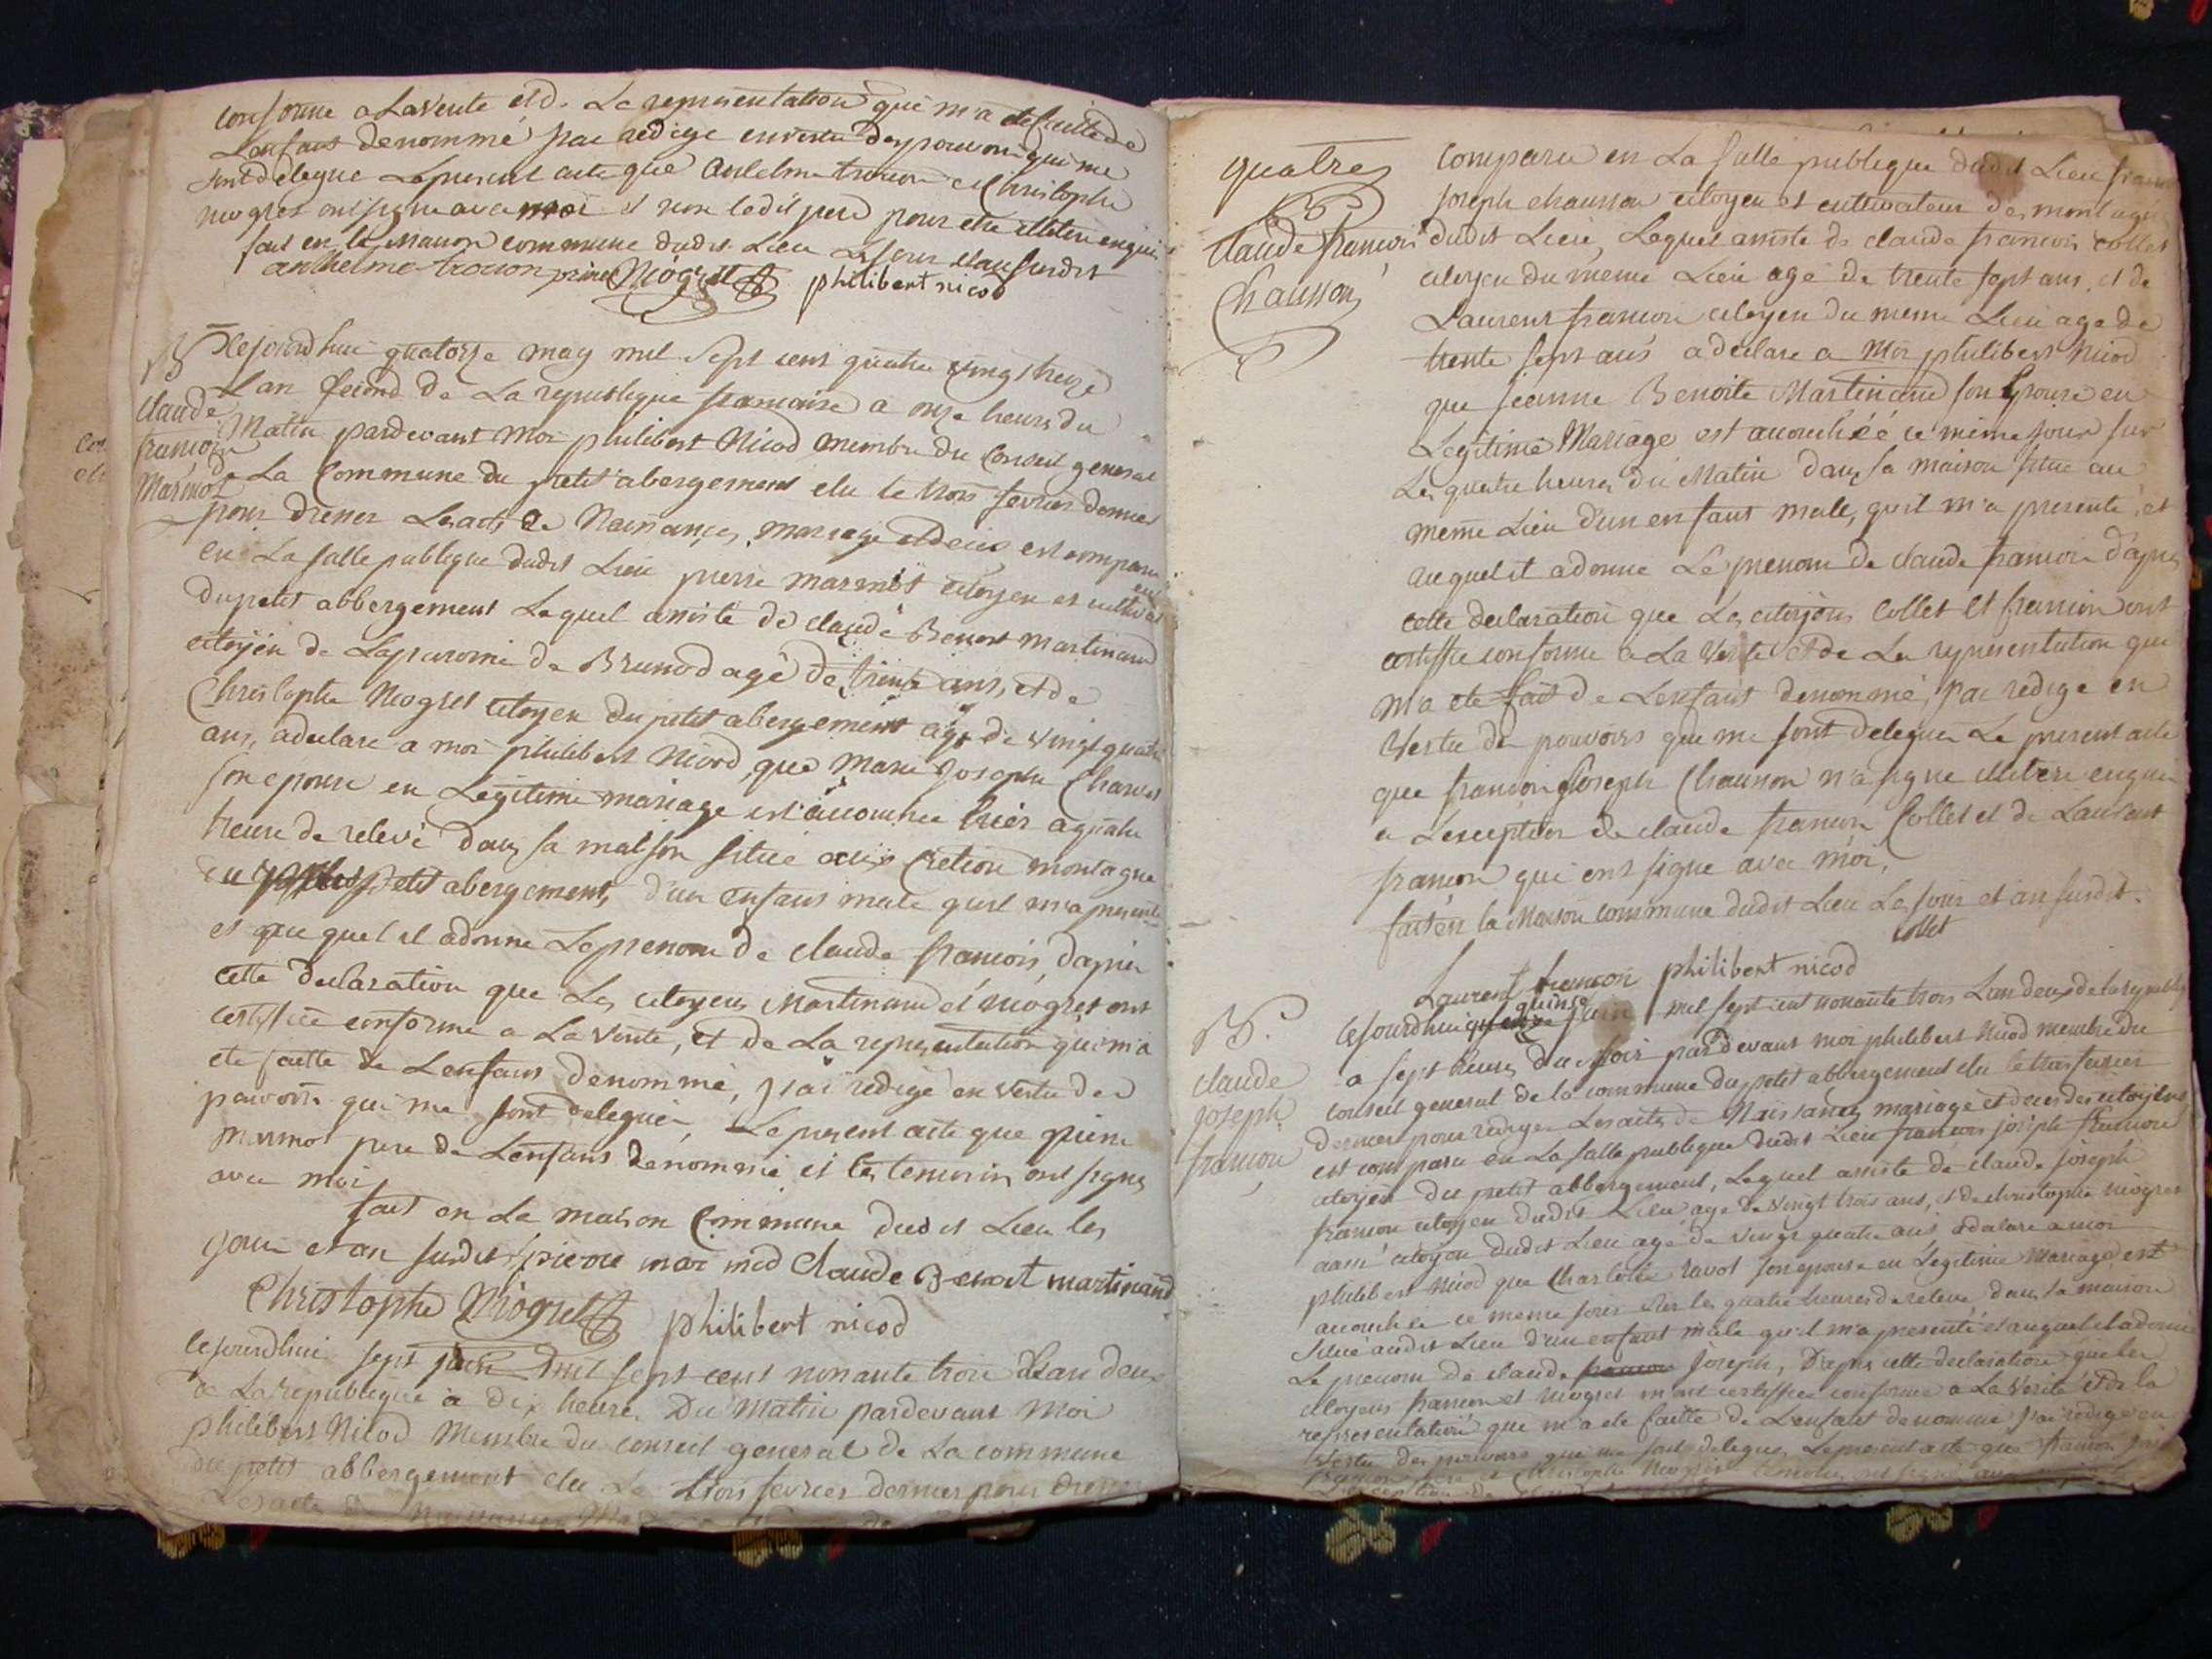 conforme a La verité et de La representation qui m'a eté faitte de
Lenfant denommé j'ai redigé en vertu des pouvoirs qui me
sont delegué Le present acte que Anthelme trocon et Christophe
niogret ont signe avec moi et non ledit pere pour etre illitere enquis
fait en la Maison commune dudit Lieu Les jour et an susdit
anthelme trocon Niogret philibert nicod
B
claude
francois
Marmot
Cejourdhui quatorze may mil sept cent quatre vingt treize
Lan second de La republique francaise a onze heures du
Matin pardevant Moi philibert Nicod membre du Conseil general
de La Commune du petit abergement elu le trois fevrier dernier
pour dresser Les actes de Naissances, mariage et deces est comparu
en La salle publique dudit Lieu pierre marmot citoyen et cultivateur
du petit abbergement Lequel assisté de claude Benoit martinand
citoyen de La paroisse de Brenod agé de trente ans, et de
Christophe Niogret citoyen du petit abergement agé de vingt quatre
ans, a declare a moi philibert Nicod, que Marie Joseph Charvet
son epouse en Legitime mariage est accouchée hier a quatre
heure de relevé dans sa maison situé montagne
du petit abergement, d'un enfant male quil m'a presenté
et au quel il a donne Le prenom de claude francois, dapres
cette declaration que Les citoyens Martinand et niogret ont
certifiée conforme a La verité, et de La representation qui m'a
eté faitte de Lenfant denommé, j'ai redigé en vertu des
pouvoirs qui me sont delegués, Le present acte que pierre
marmot pere de Lenfant denommé et les temoins ont signe
avec moi
fait en La maison Commune dudit Lieu les
jour et an susdit pierre mar mod Claude Benoit martinand
Christophe Niogret philibert nicod
Cejourdhui sept juin mil sept cent nonante trois Lan deux
de La republique a dix heures Du Matin pardevant Moi
philibert Nicod Membre du conseil general de La commune
du petit abbergement elu Le trois fevrier dernier pour dresser
Les actes de
quatres
Claude francois
Chausson
Comparu en La salle publique dudit Lieu francois
joseph chausson citoyen et cultivateur
dudit Lieu, Lequel assiste de claude francois collet
citoyen du meme Lieu agé de trente sept ans, et de
Laurent francon citoyen du meme Lieu age de
trente sept ans a declare a Moi philibert Nicod
que jeanne Benoite Martinand son Epouse en
Legitime Mariage est accouchéé ce même jour sur
Les quatre heures du Matin dans sa maison situe au
meme Lieu d'un enfant male, quil m'a presenté, et
auquel il a donne Le prenom de claude francois d'apres
cette declaration que Les citoyens Collet et francon ont
certiffié conforme a La Verité et de La representation que
m'a eté fait de Lenfant denommé, j'ai redigé en
Vertu de pouvoirs qui me sont delegués Le present acte
que francois joseph Chausson n'a signe illitere enquis
a Lexception de claude francois Collet et de Laurent
francon qui ont signe avec moi,
fait en la Maison commune dudit Lieu Les jour et an susdit.
collet
Laurent francon philibert nicod
B.
claude
joseph
francon
quinze
Cejourdhui juin mil sept cent nonante trois Lan deux de la republique
a sept heures du soir pardevant moi philibert Nicod membre du
Conseil general de la commune du petit abbergement elu le trois fevrier
dernier pour rediger Les actes de Naissances mariage et deces des citoyens
est comparu en La salle publique dudit Lieu francois joseph francon
citoyen du petit abbergement, Lequel assiste de claude joseph
francon citoyen dudit Lieu age de vingt trois ans, et de christophe niogret
aussi citoyen dudit Lieu agé de vingt quatre ans, a declaré a moi
philibert Nicod que Charlotte ravot son epouse en Legitime Mariage est
accouchée ce meme jour sur les quatre heures de relevé dans sa maison
situé audit Lieu d'un enfant male quil m'a presenté et auquel il a donné
Le prenom de claude francon joseph, D'apres cette declaration que les
citoyens francon et niogret m'ont certiffiée conforme a La verité et de la
representation que m'a eté faitte de Lenfant denommé j'ai redigé en
vertu des pouvoirs qui me sont delegues Le present acte que francois joseph
francon pere et Christophe Niogret temoins ont signé